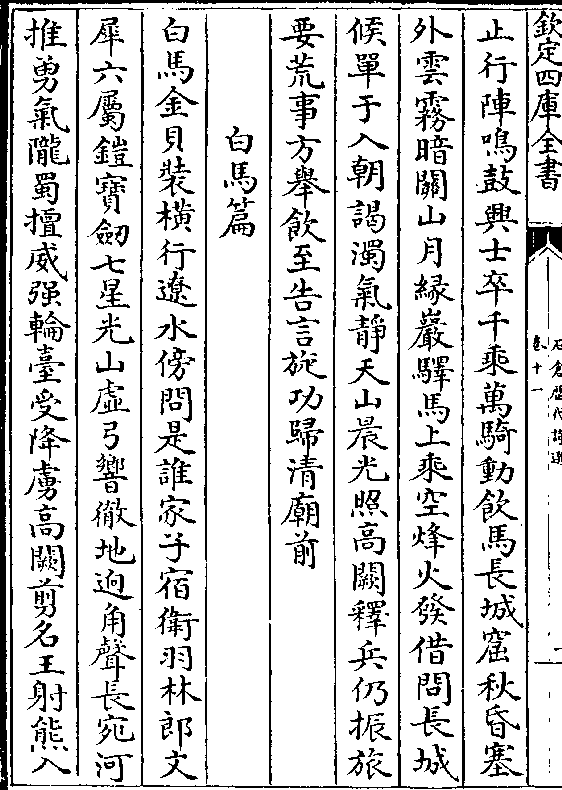 欽定四庫全書
石倉歴代詩選
卷十一
止行陣鳴鼓興士卒千乘萬騎動飲馬長城窟秋昏塞
外雲霧暗關山月緣巖驛馬上乘空烽火發借問長城
候單于入朝謁濁氣靜天山晨光照高闕釋兵仍振旅
要荒事方舉飲至告言旋功歸清廟前
白馬篇
白馬金貝裝橫行遼水傍問是誰家子宿衛羽林郎文
犀六屬鎧寶劒七星光山虛弓響徹地逈角聲長宛河
推勇氣隴蜀擅威强輪臺受降虜高闕剪名王射熊入